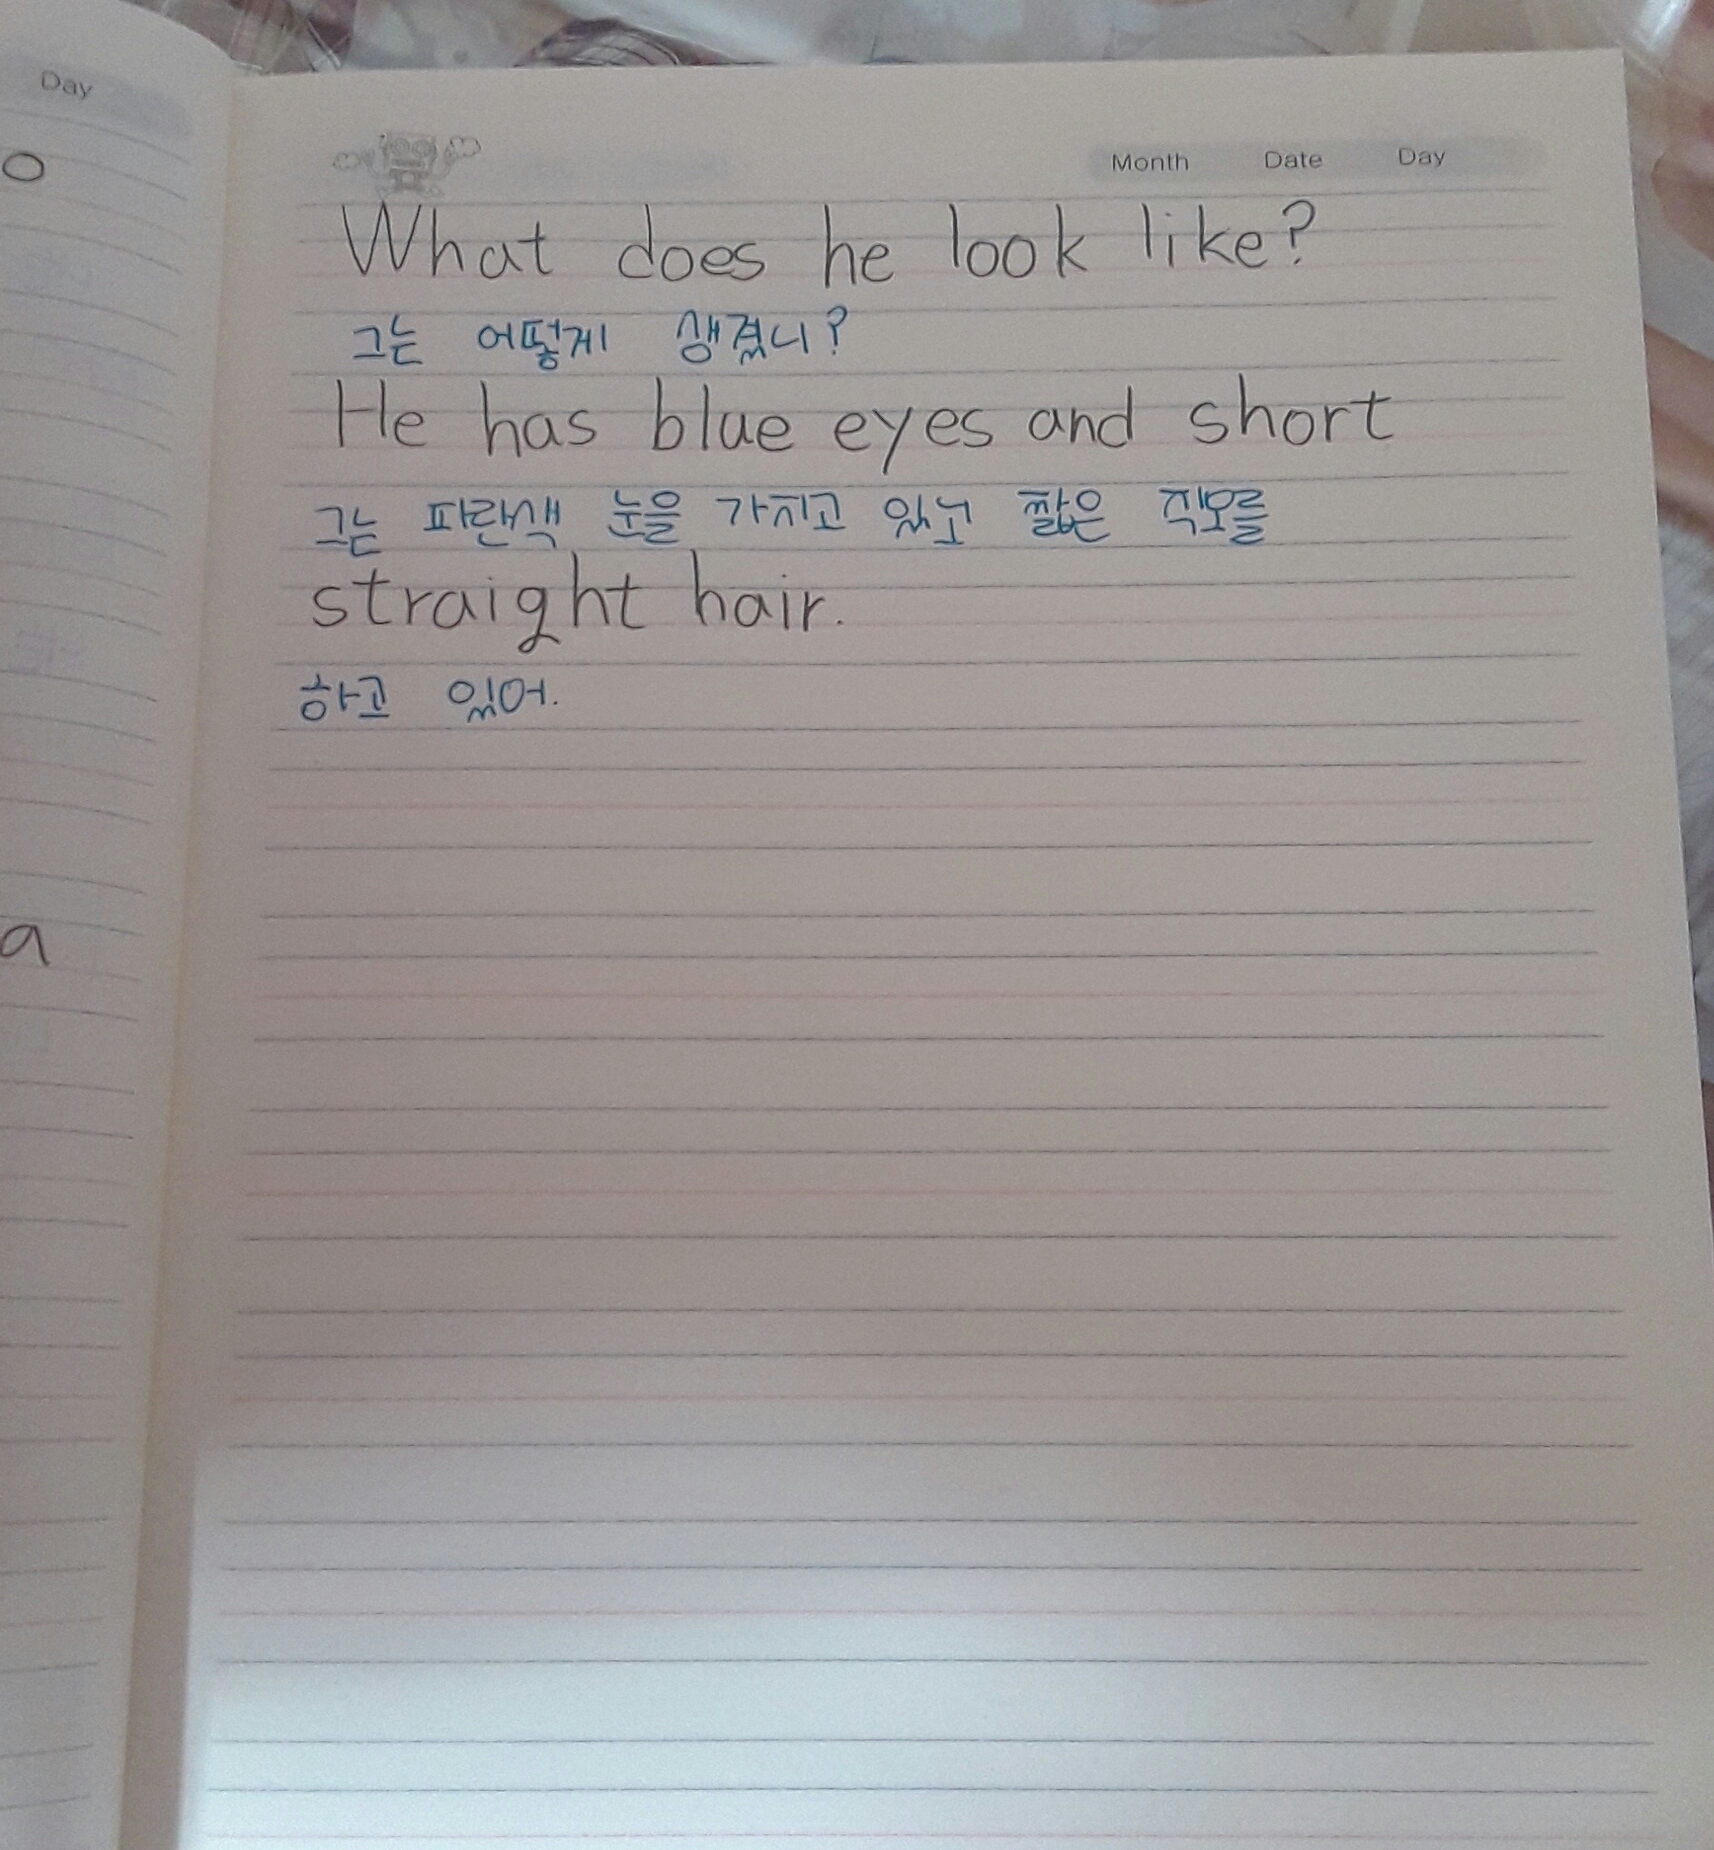 Day
o
a
Month Date Day
What does he look like?
그는 어떻게 생겼니?
He has blue eyes and short
그는 파란색 눈을 가지고 있고 짧은 직모를
straight hair.
하고 있어.